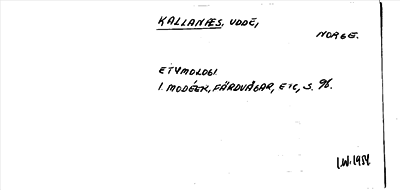 KALLANÆS, UDDE,
NORGE.
ETYMOLOGI
I. MODÉER, FÄRDVÄGAR, ETC, S. 98.
I.W. 1954